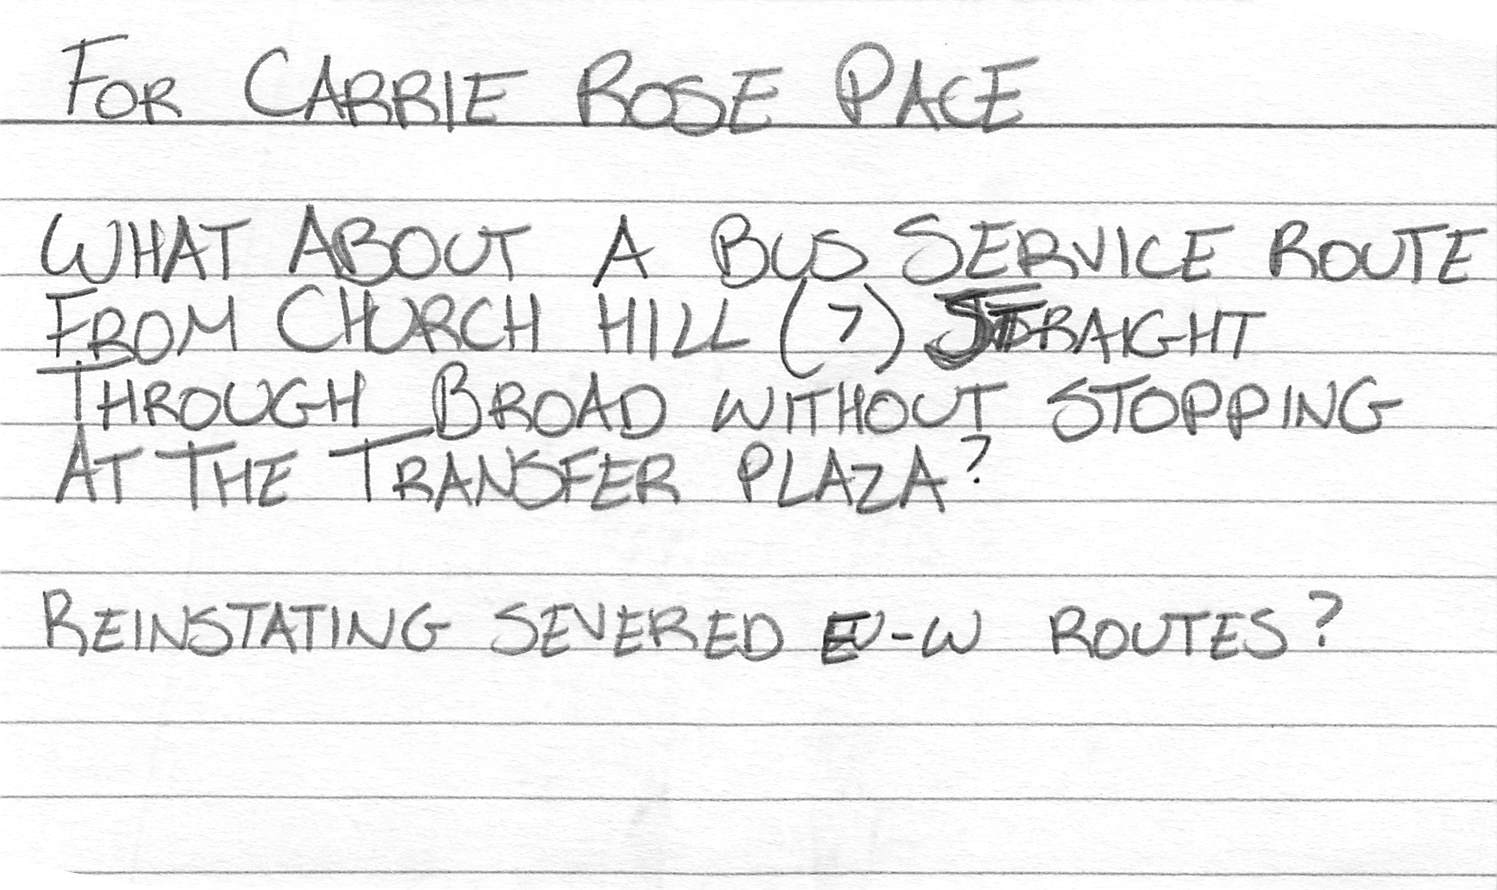 FOR CARRIE ROSE PACE
WHAT ABOUT A BUS SERVICE ROUTE
FROM CHURCH HILL (7) STRAIGHT
THROUGH BROAD WITHOUT STOPPING
AT THE TRANSFER PLAZA?
REINSTATING SEVERED E-W ROUTES?